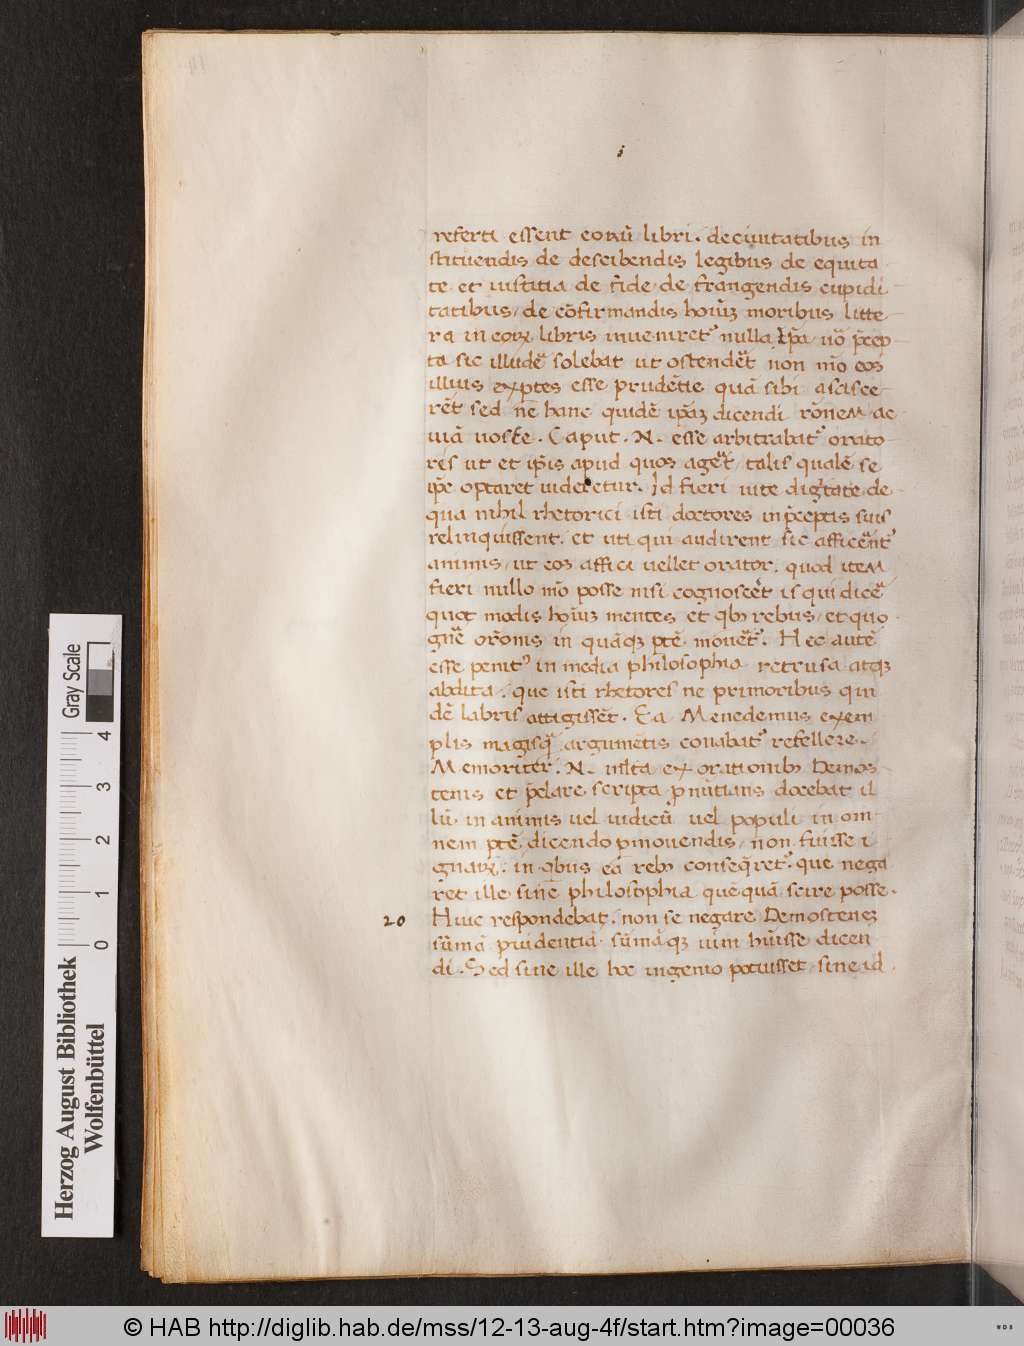 i
referti essent eorũ libri. de ciuitatibus in
stituendis de desCibendis legibus de equita
te et iustitia de fide de frãngendis cupidi
tatibus/ de cõfirmandis hoiũꝫ moribus litte
ra in eorꝝ libris inueniret᷒ nulla. Ip̃a uõ p̃cep
ta sic illudẽ solebat ut ostendẽt non mõ eos
illius exptes esse prudẽtie quã sibi ascisce
rẽt sed nẽ hanc quidẽ ip̃aꝫ dicendi rõnem ac
uiã nosse. Caput. N. esse arbitrabat᷒ orato
res ut et ip̃is apud quos agẽt/ talis qualẽ se
ip̃e optaret uideretur. Id fieri uite dig̃tate de
qua nihil rhetorici isti doctores in p̃ceptis suis
relinquissent. et uti qui audirent sic afficẽnt᷒
animis/ ut eos affici uellet orator. quod item
fieri nullo mõ posse nisi cognoscẽt is qui dicẽ
quot modis hoiũꝫ mentes et qbꝫ rebus/ et quo
gñe orõnis in quãqꝫ ptẽ mouẽt᷒. Hec autẽ
esse penit᷒ in media philosophia retrusa atqꝫ
abdita. que isti rhetores ne primoribus qui
dẽ labris attigissẽt. Ea Menedemus exem
plis magisq̃ argumẽtis conabat᷒ refellere.
Memoriter. N. mĩlta ex orationibꝫ Demos
tenis et p̃clare scripta p̱nũtians docebat il
lũ in animis uel iudicũ uel populi in om
nem ptẽ dicendo p̱mouendis/ non fuisse i
gnarꝫ. in qbus eã rebꝫ conseq̃ret᷒. que nega
ret ille sinẽ philosophia quẽquã scire posse.
20 Huic respondebat. non se negare Demostenez
sũmã pruidentiã sũmãqꝫ uim hũisse dicen
di. Sed siue ille hoc ingenio potuisset/ siue id
Gray Scale
0 1 2 3 4
Herzog August Bibliothek
Wolfenbüttel
© HAB http://diglib.hab.de/mss/12-13-aug-4f/start.htm?image=00036